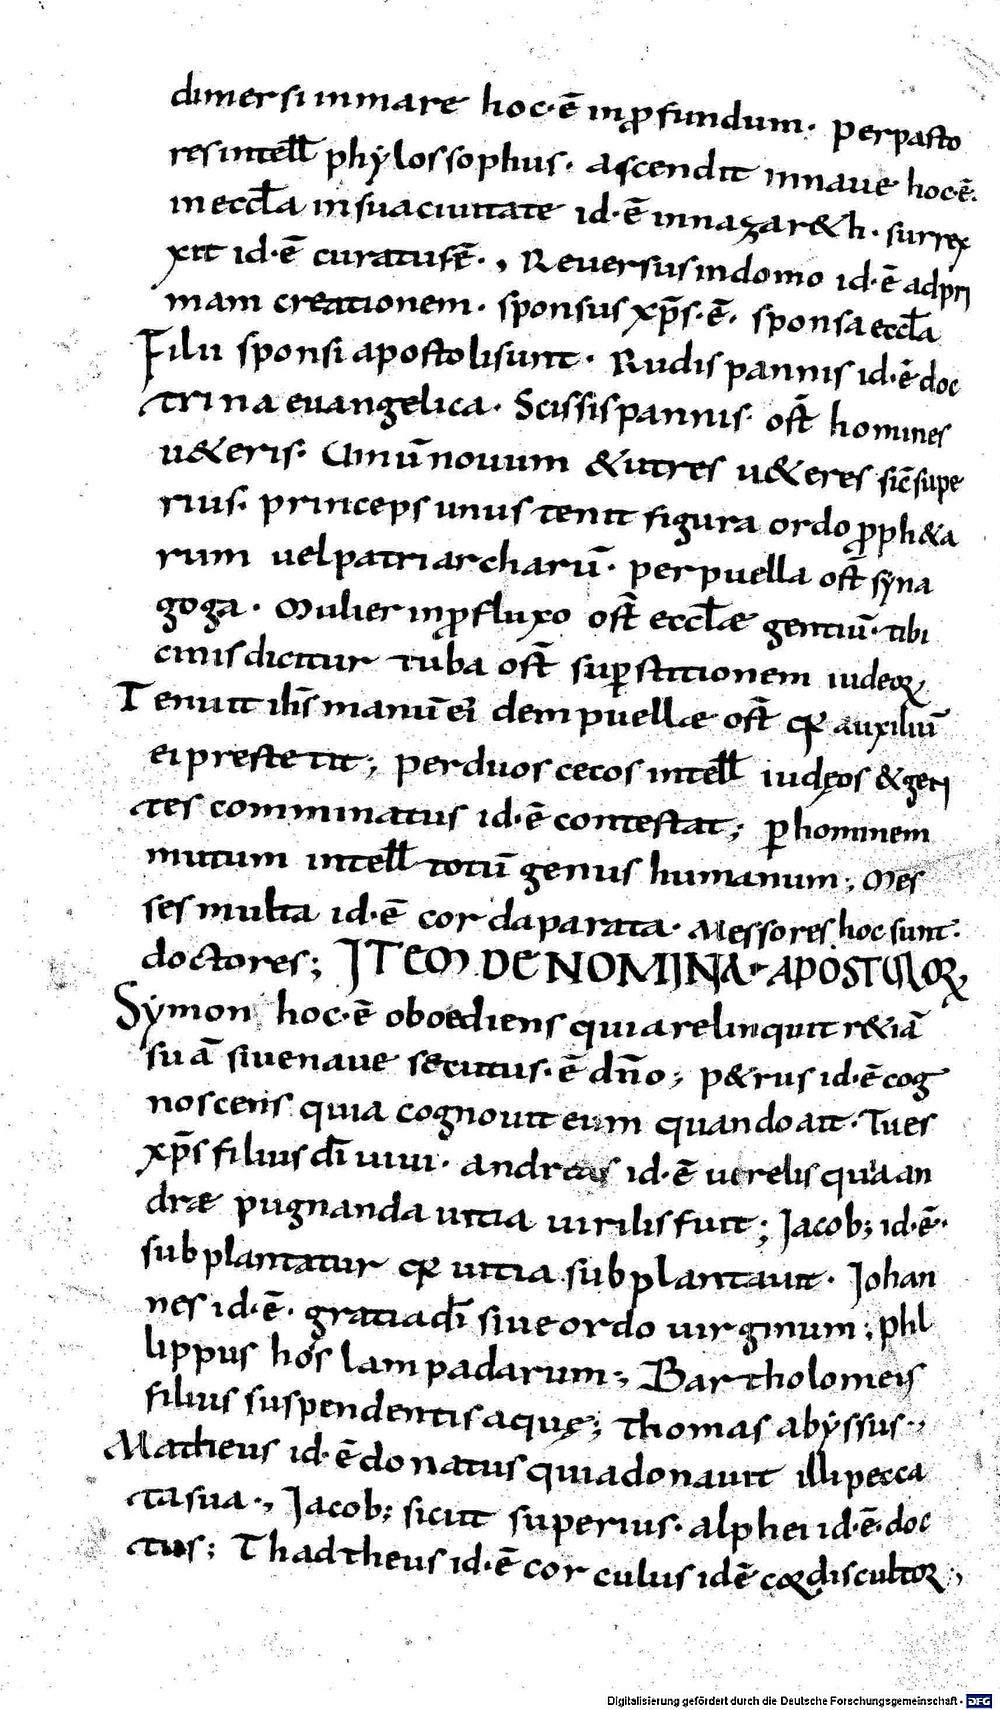 dimersi inmare hoc·ē inꝓfundum· perpasto
res intełł phẏlossophus· ascendit innaue hoc·ē·
in eccła insuaciuitate id·ē innazar&h· surrex
xit id·ē curatus ē·, Reuersus indomo id·ē adpri
mam creationem· sponsus xp̄s·ē· sponsa eccła
Filii sponsi apostoli sunt· Rudis pannis id·ē doc
trina euangelica· Scissis pannis· ost̄ homines
u&eris· Uinū nouum &utres u&eres sic̄ supe
rius· princeps unus tenit figura ordo ꝓph&a
rum uel patriarcharū· per puella ost̄ syna
goga· Mulier inꝓfluxo ost̄ eccłæ gentiū· tibi
cinis dicitur tuba ost̄ suꝑstitionem iudeoꝝ
Tenuit ih̄s manū ei dem puellæ ost̄ qꝛ auxiliū
ei prestetit; per duos cecos intełł iudęos &gen
tes comminatus id·ē contestat; ꝑ hominem
mutum intełł totū genus humanum; Mes
ses multa id·ē corda parata· Messores hoc sunt·
doctores; ITEM DE NOMINA APOSTULOꝝ
Sẏmon hoc·ē oboediens quia relinquit r&iā
suā siue naue secutus·ē dn̄o; p&rus id·ē cog
noscens quia cognouit eum quando ait· Tu es
xp̄s filius dī uiui· andreas id·ē uirelis quia an
dræ pugnanda uitia uirilis fuit; Jacob; id·ē·
subplantatur qꝛ uitia subplantauit· Johan
nes id·ē· gratia dī siue ordo uirginum; phi
lippus hos lampadarum; Bartholomeis
filius suspendentis aquę; thomas abẏssus·,
Matheus id·ē donatus quia donauit illi pecca
ta sua·, Jacob; sicut superius· alphei id·ē· doc
tus; Thadtheus id·ē corculus id ē cordis cultoꝝ,
Digitalisierung gefördert durch die Deutsche Forschungsgemeinschaft - DFG